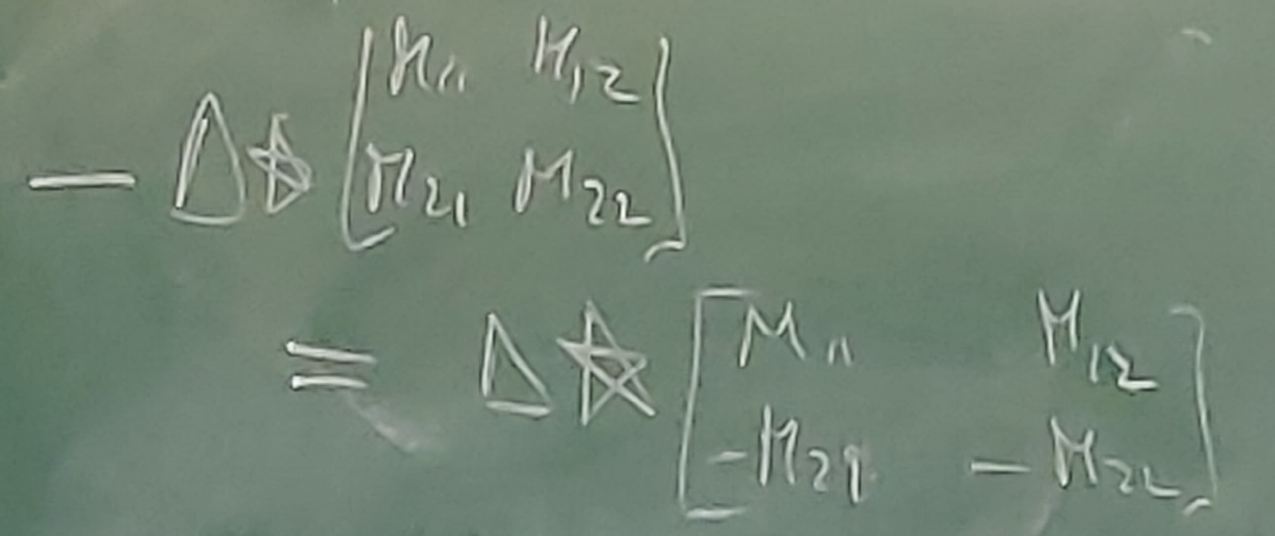 − Δ☆ [M₁₁ M₁₂
M₂₁ M₂₂]
= Δ☆ [M₁₁ M₁₂
−M₂₁ −M₂₂]